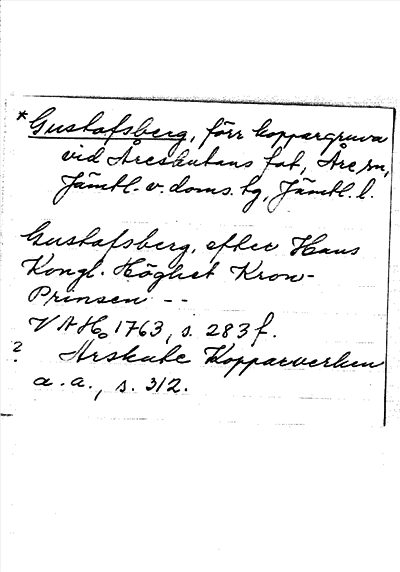 *Gustafsberg, förr koppargruva
vid Åreskutans fot, Åre sn,
Jämtl. v. doms. tg, Jämtl. l.
Gustafsberg, efter Hans
Kongl. Höghet Kron-
Prinsen --
VAH, 1763, s. 283 f.
? Årskute Kopparverken
a. a., s. 312.